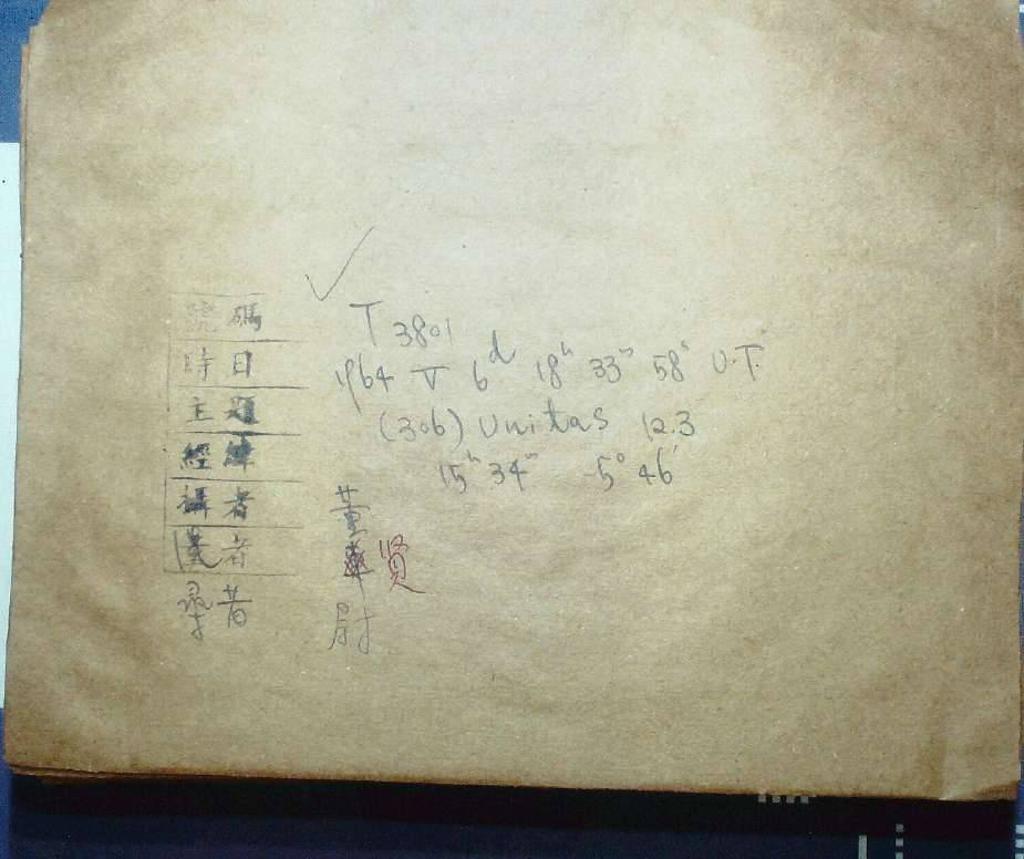 號碼 T 3801
時日 1964 V 6ᵈ 18ʰ 33ᵐ 58ˢ U.T.
主題 (306) Unitas 12.3
經緯 15ʰ 34ᵐ -5° 46′
攝者 董
者 贤
尋者 尉